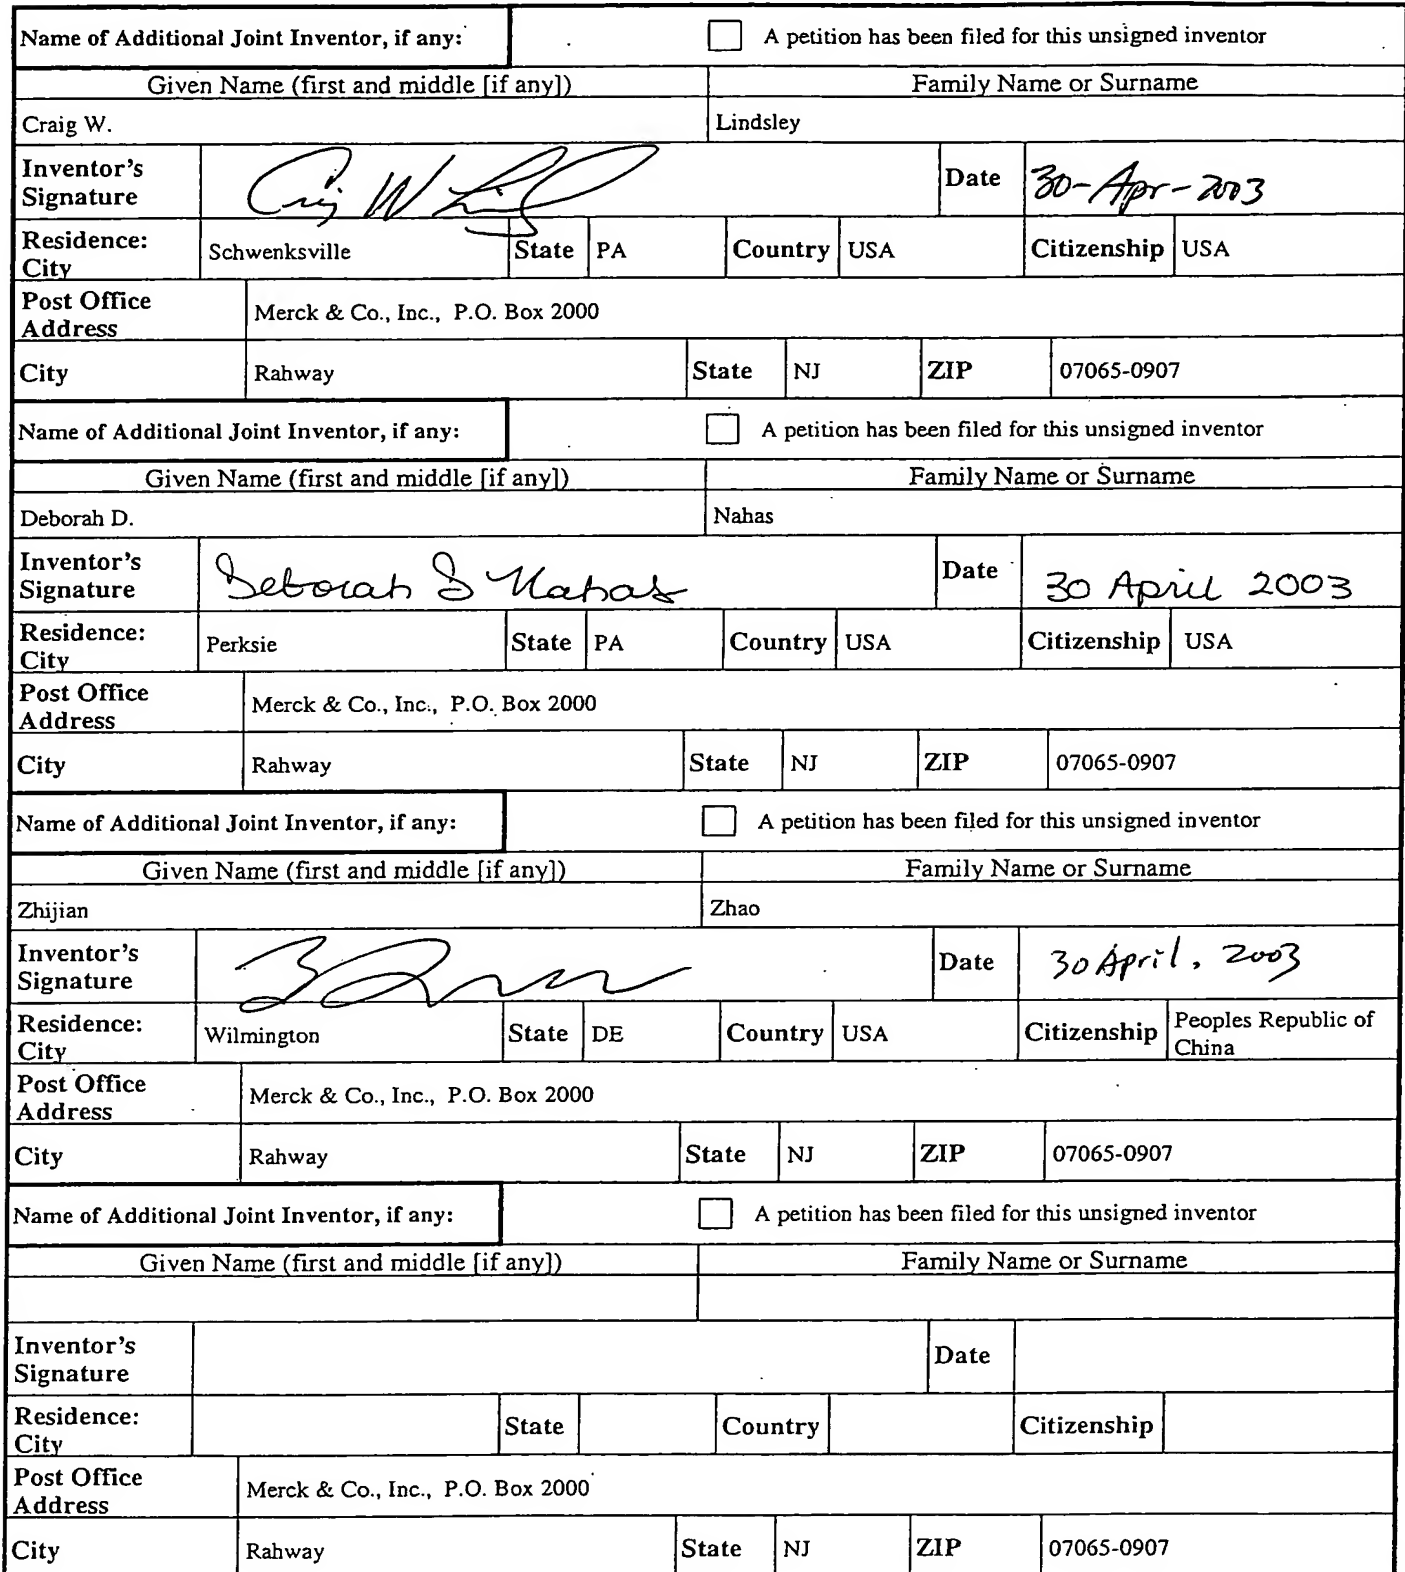 Name of Additional Joint Inventor, if any: A petition has been filed for this unsigned inventor
Given Name (first and middle [if any]) Family Name or Surname
Craig W. Lindsley
Inventor's Signature Craig W Lindsley Date 30-Apr-2003
Residence: City Schwenksville State PA Country USA Citizenship USA
Post Office Address Merck & Co., Inc., P.O. Box 2000
City Rahway State NJ ZIP 07065-0907
Name of Additional Joint Inventor, if any: A petition has been filed for this unsigned inventor
Given Name (first and middle [if any]) Family Name or Surname
Deborah D. Nahas
Inventor's Signature Deborah D Nahas Date 30 April 2003
Residence: City Perksie State PA Country USA Citizenship USA
Post Office Address Merck & Co., Inc., P.O. Box 2000
City Rahway State NJ ZIP 07065-0907
Name of Additional Joint Inventor, if any: A petition has been filed for this unsigned inventor
Given Name (first and middle [if any]) Family Name or Surname
Zhijian Zhao
Inventor's Signature Date 30 April, 2003
Residence: City Wilmington State DE Country USA Citizenship Peoples Republic of China
Post Office Address Merck & Co., Inc., P.O. Box 2000
City Rahway State NJ ZIP 07065-0907
Name of Additional Joint Inventor, if any: A petition has been filed for this unsigned inventor
Given Name (first and middle [if any]) Family Name or Surname
Inventor's Signature Date
Residence: City State Country Citizenship
Post Office Address Merck & Co., Inc., P.O. Box 2000
City Rahway State NJ ZIP 07065-0907